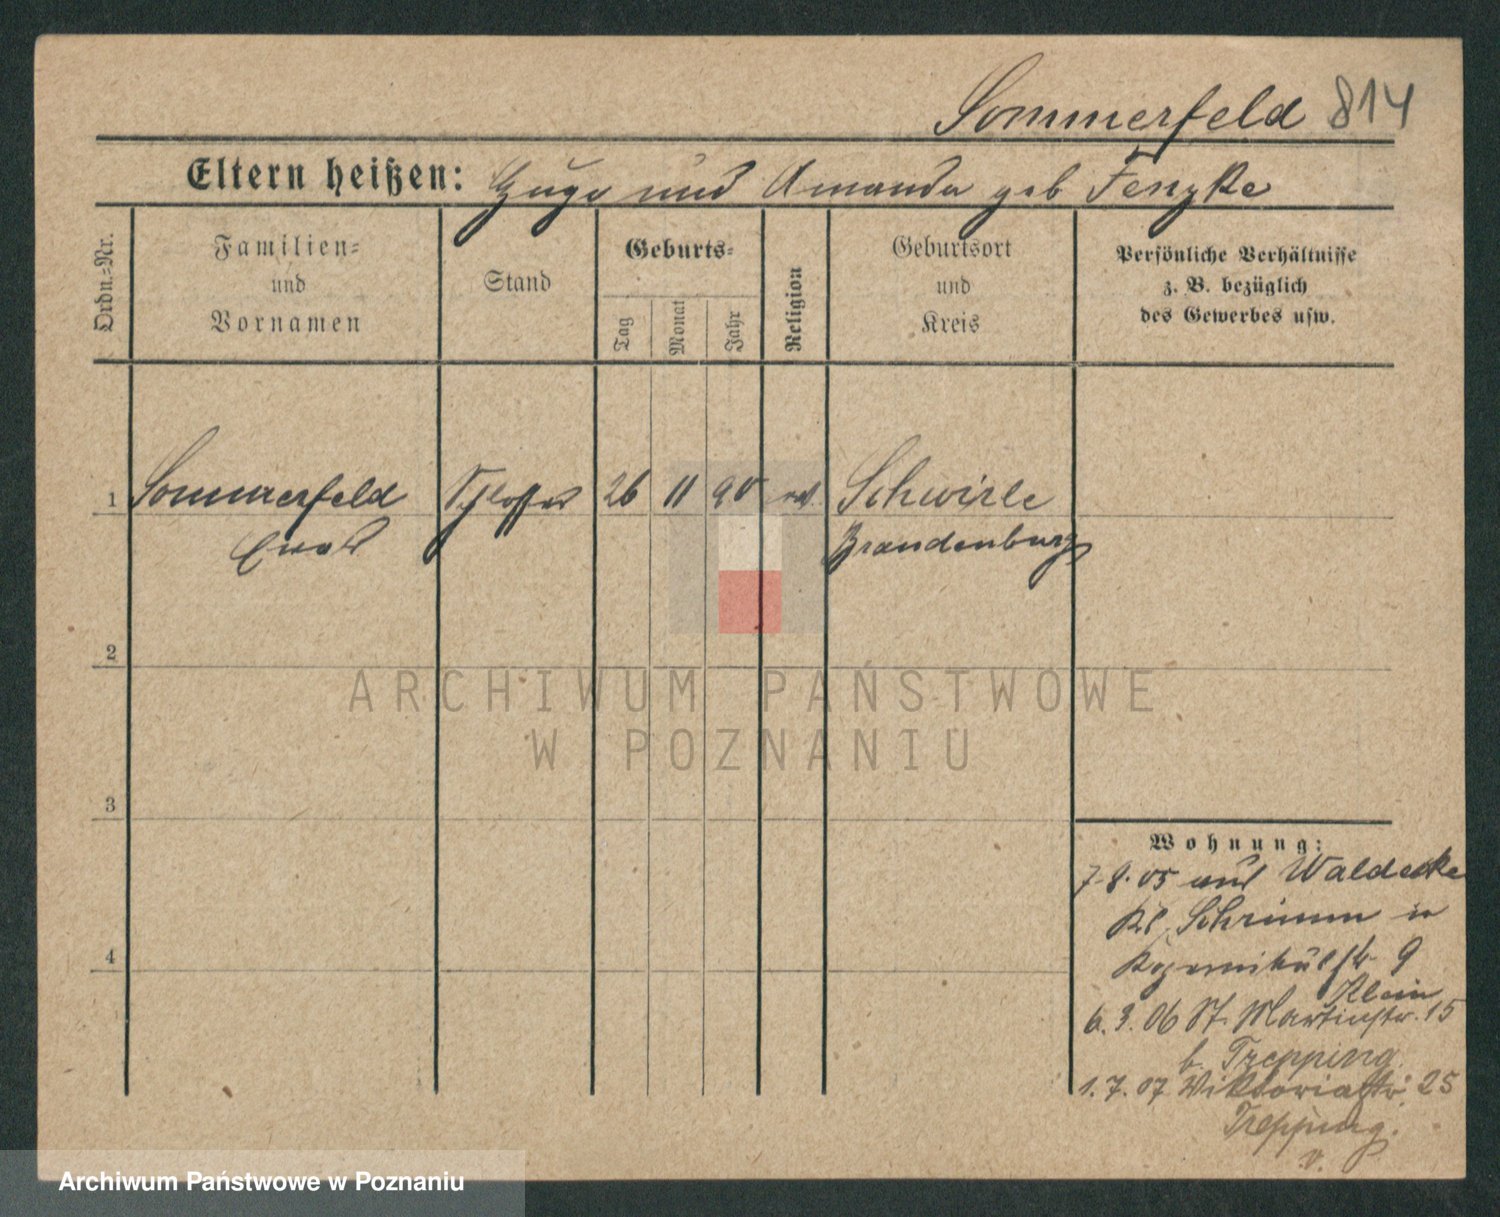 Sommerfeld 814
Eltern heißen: Hugo und Amanda geb Fenzke
Ordn.=Nr.
Familien=
und
Vornamen
Stand
Geburts=
Tag
Monat
Jahr
Religion
Geburtsort
und
Kreis
Persönliche Verhältnisse
z. B. bezüglich
des Gewerbes usw.
1 Sommerfeld Schlosser 26 11 90 Schwirle
Brandenburg
2
3
4
Wohnung:
7.8.05 aus Waldecke
Kr. Schrimm in
9
Klein
6.3.06 St. Martinstr. 15
b. Trepping
1.7.07 Viktoriastr. 25
Trepping.
v.
ARCHIWUM PAŃSTWOWE
W POZNANIU
Archiwum Państwowe w Poznaniu